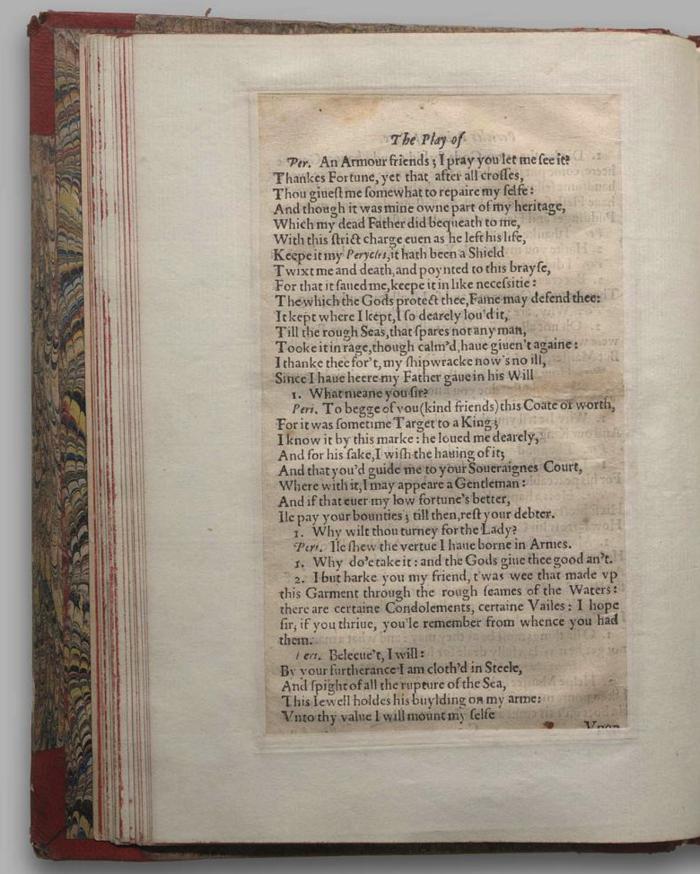 The Play of
Per. An Armour friends; I pray you let me ſee it?
Thankes Fortune, yet that after all croſſes,
Thou giueſt me ſomewhat to repaire my ſelfe:
And though it was mine owne part of my heritage,
Which my dead Father did bequeath to me,
With this ſtrict charge euen as he left his life,
Keepe it my Perycles, it hath been a Shield
Twixt me and death, and poynted to this brayſe,
For that it ſaued me, keepe it in like neceſsitie:
The which the Gods protect thee, Fame may defend thee:
It kept where I kept, I ſo dearely lou'd it,
Till the rough Seas, that ſpares not any man,
Tooke it in rage, though calm'd, haue giuen't againe:
I thanke thee for't, my ſhipwracke now's no ill,
Since I haue heere my Father gaue in his Will
1. What meane you ſir?
Peri. To begge of you (kind friends) this Coate of worth,
For it was ſometime Target to a King;
I know it by this marke: he loued me dearely,
And for his ſake, I wiſh the hauing of it;
And that you'd guide me to your Soueraignes Court,
Where with it, I may appeare a Gentleman:
And if that euer my low fortune's better,
Ile pay your bounties; till then, reſt your debter.
1. Why wilt thou turney for the Lady?
Peri. Ile ſhew the vertue I haue borne in Armes.
1. Why do'e take it: and the Gods giue thee good an't.
2. I but harke you my friend, t'was wee that made vp
this Garment through the rough ſeames of the Waters:
there are certaine Condolements, certaine Vailes: I hope
ſir, if you thriue, you'le remember from whence you had
them.
Peri. Beleeue't, I will:
By your furtherance I am cloth'd in Steele,
And ſpight of all the rupture of the Sea,
This Iewell holdes his buylding on my arme:
Vnto thy value I will mount my ſelfe